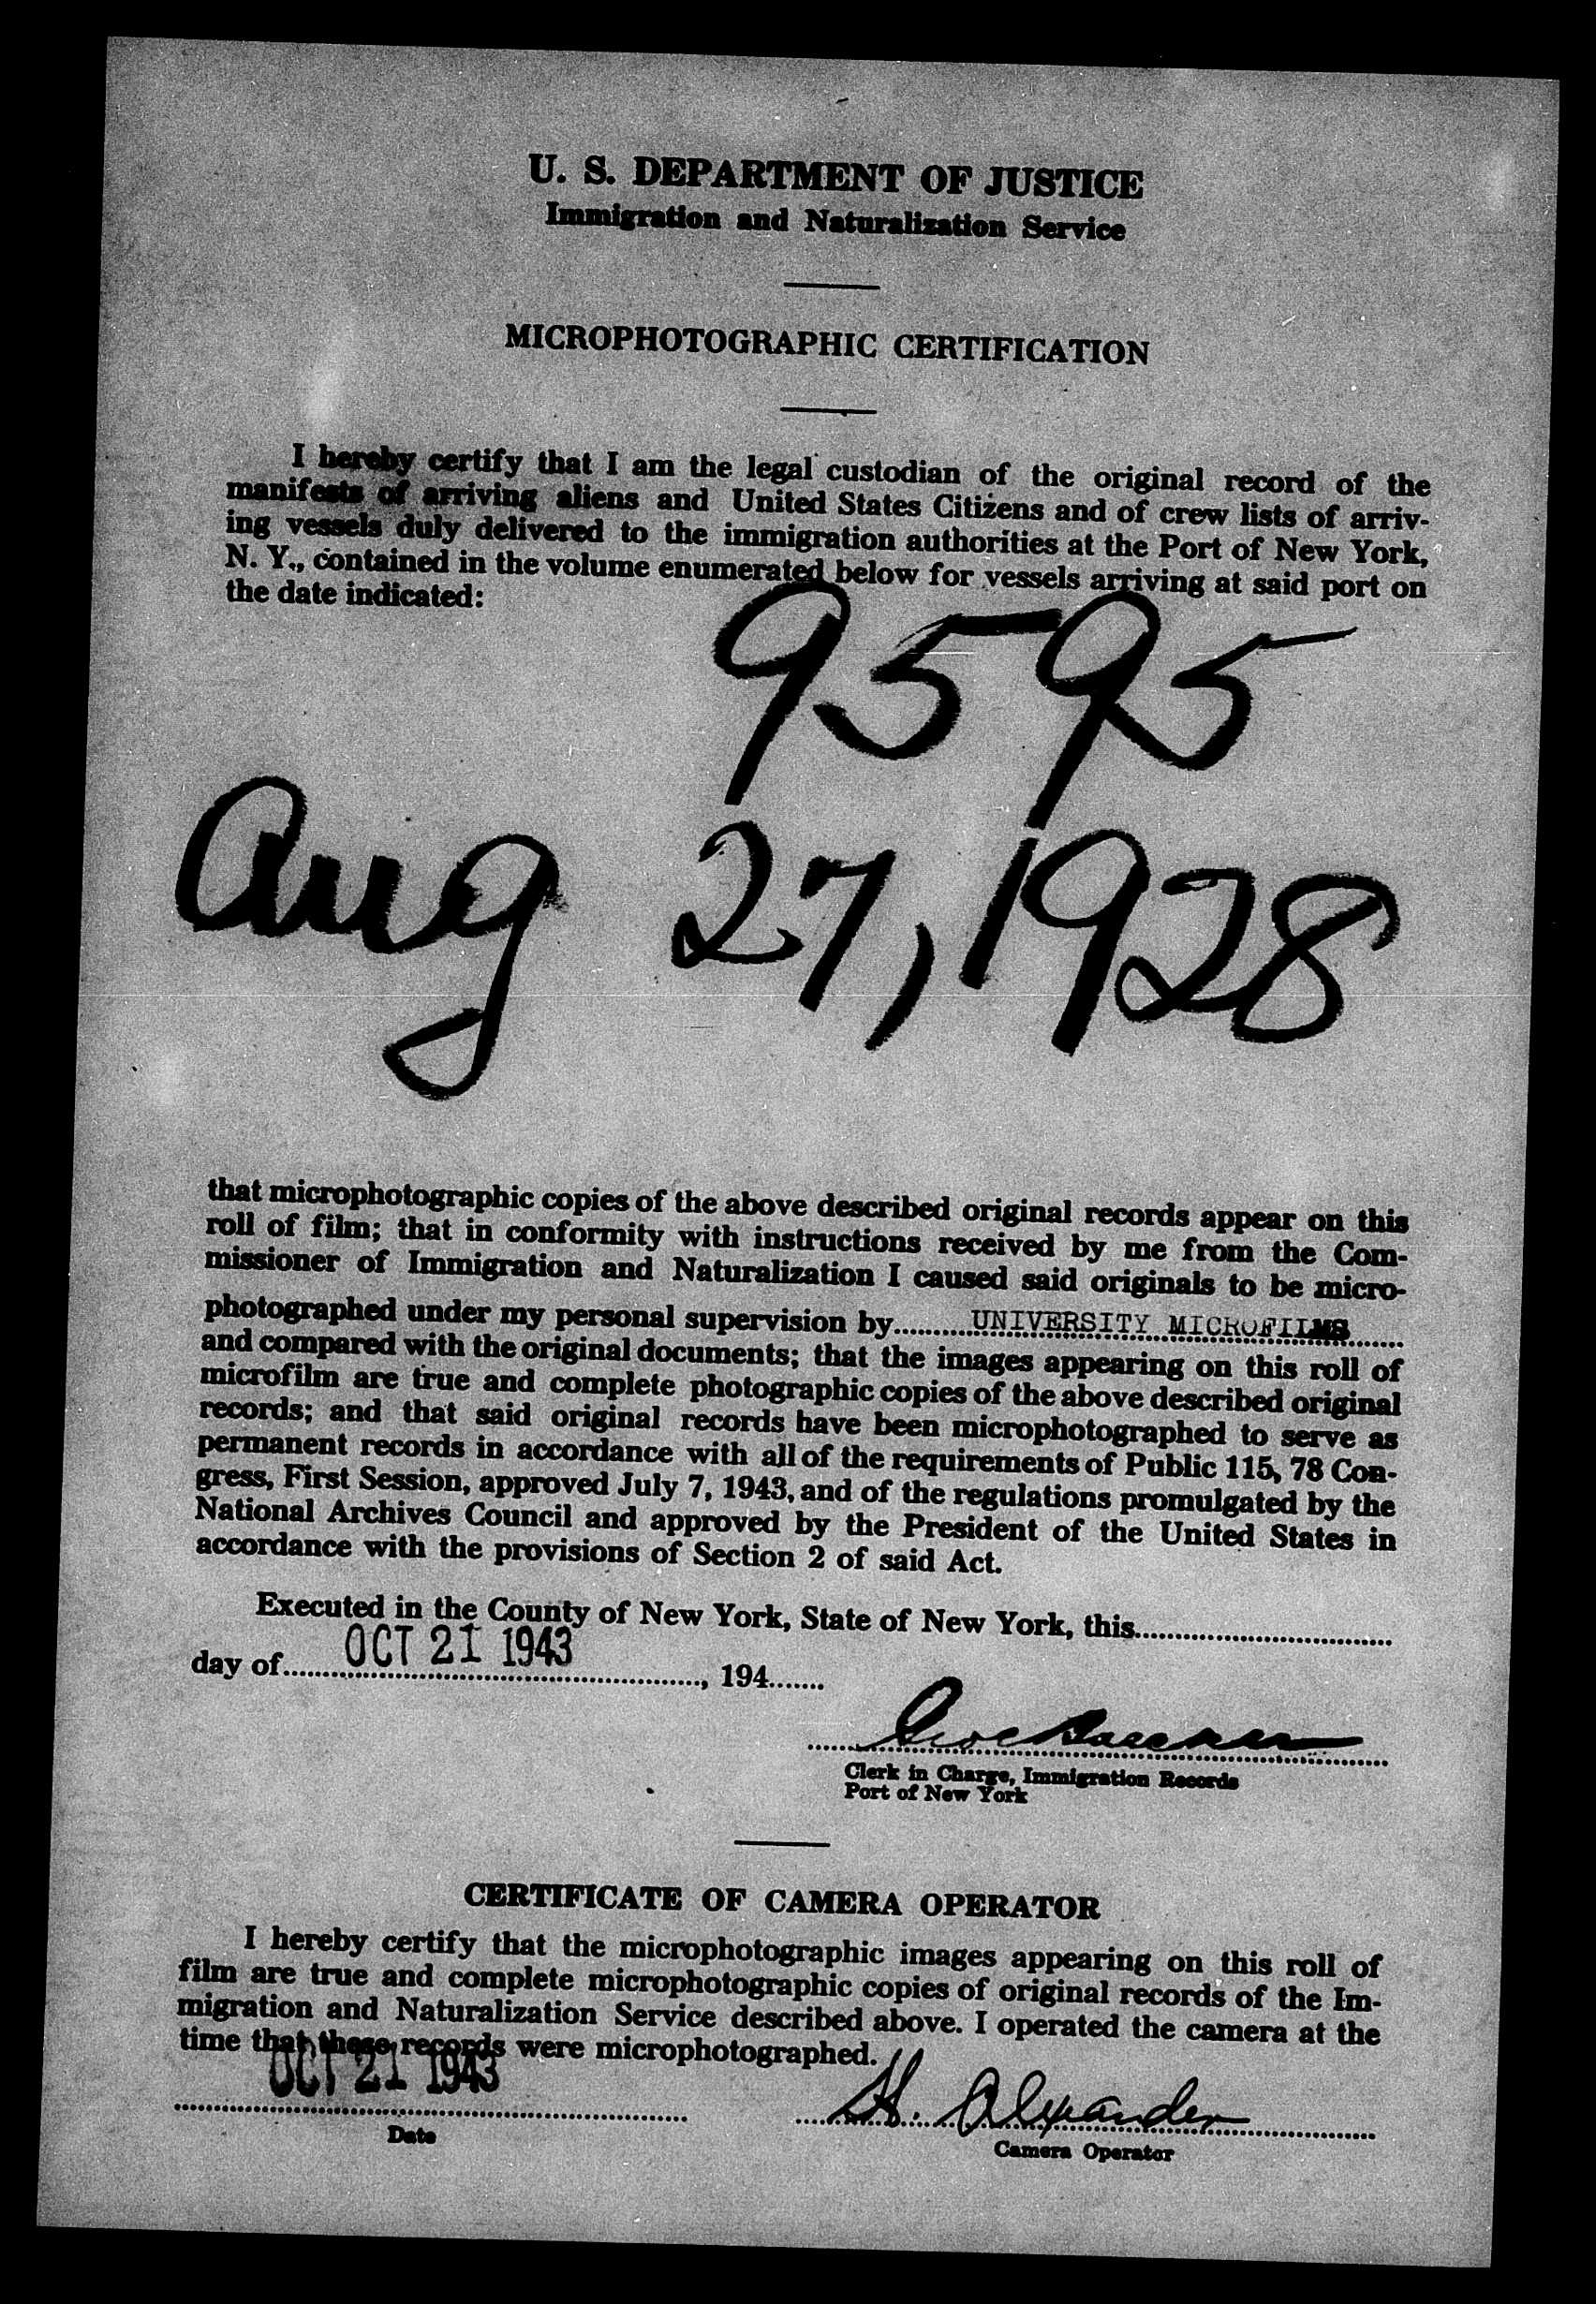 U. S. DEPARTMENT OF JUSTICE
Immigration and Naturalization Service
MICROPHOTOGRAPHIC CERTIFICATION
I hereby certify that I am the legal custodian of the original record of the
manifests of arriving aliens and United States Citizens and of crew lists of arriv-
ing vessels duly delivered to the immigration authorities at the Port of New York,
N. Y., contained in the volume enumerated below for vessels arriving at said port on
the date indicated:
9595
Aug 27, 1928
that microphotographic copies of the above described original records appear on this
roll of film; that in conformity with instructions received by me from the Com-
missioner of Immigration and Naturalization I caused said originals to be micro-
photographed under my personal supervision by UNIVERSITY MICROFILMS
and compared with the original documents; that the images appearing on this roll of
microfilm are true and complete photographic copies of the above described original
records; and that said original records have been microphotographed to serve as
permanent records in accordance with all of the requirements of Public 115, 78 Con-
gress, First Session, approved July 7, 1943, and of the regulations promulgated by the
National Archives Council and approved by the President of the United States in
accordance with the provisions of Section 2 of said Act.
Executed in the County of New York, State of New York, this
day of OCT 21 1943, 194
Clerk in Charge, Immigration Records
Port of New York
CERTIFICATE OF CAMERA OPERATOR
I hereby certify that the microphotographic images appearing on this roll of
film are true and complete microphotographic copies of original records of the Im-
migration and Naturalization Service described above. I operated the camera at the
time that these records were microphotographed.
OCT 21 1943
H. Alexander
Date
Camera Operator